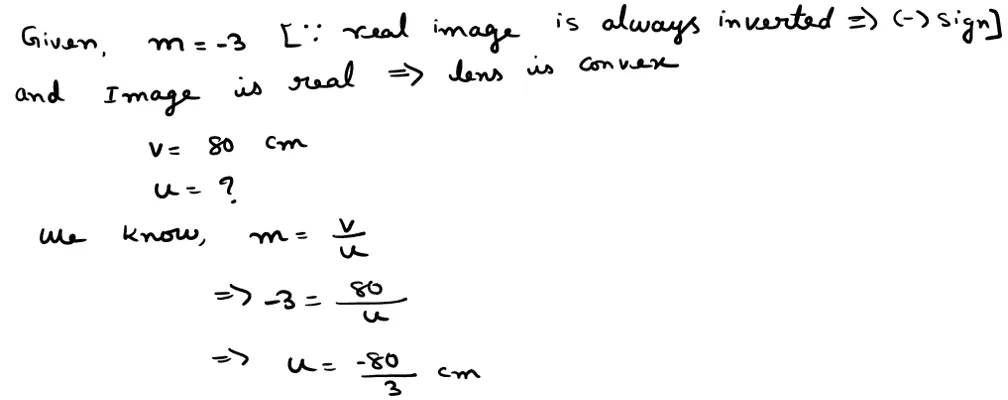 Given, m = -3 [∵ real image is always inverted => (-) sign]
and Image is real => lens is convex
v = 80 cm
u = ?
We know, m = v/u
=> -3 = 80/u
=> u = -80/3 cm